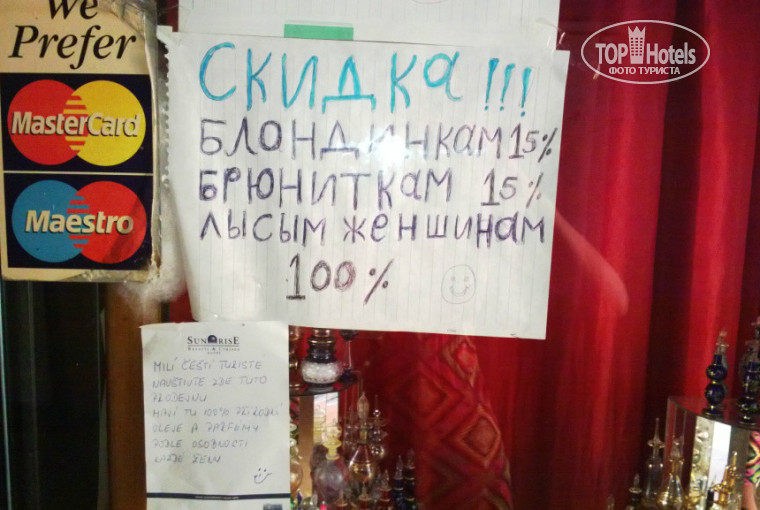 We
Prefer
MasterCard
Maestro
TOP Hotels
ФОТО ТУРИСТА
СКИДКА !!!
БЛОНДИНКАМ 15%
БРЮНИТКАМ 15%
ЛЫСЫМ ЖЕНШИНАМ
100%
SUNRISE
MILÍ ČEŠTÍ TURISTE
NAVŠTIVTE ZDE TUTO
PRODEJNU
MAJÍ TU 100% PŘÍRODNÍ
OLEJE A PARFOMY
PODLE OSOBNOSTI
ŽENY